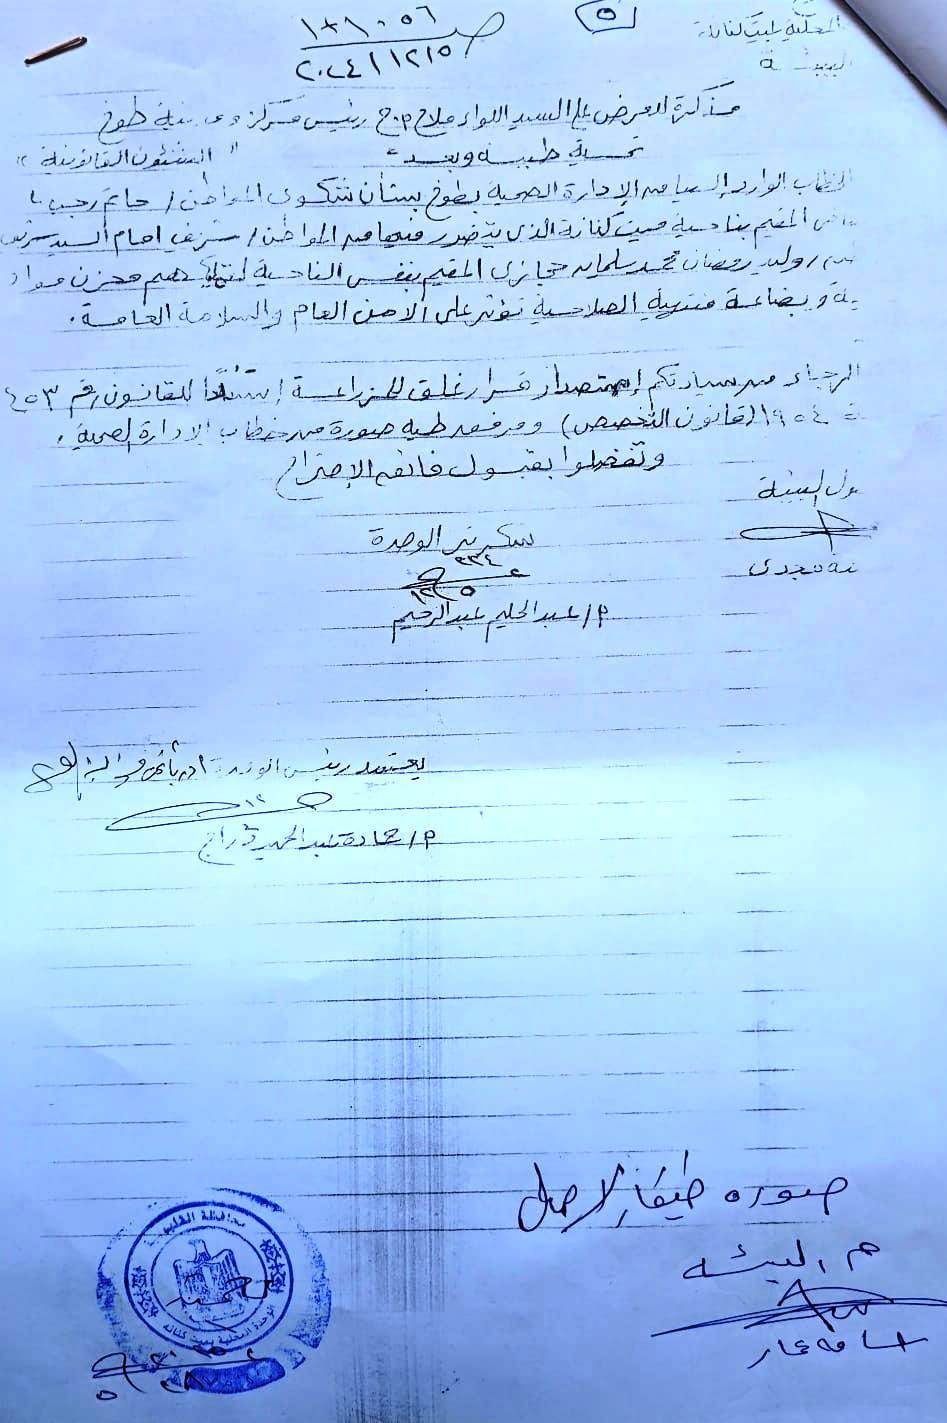 ٥
٢٠٢٤/١٢/٥
المحلية بميت كنانة
البيئة
مذكرة للعرض على السيد اللواء رئيس مركز ومدينة طوخ
تحية طيبة وبعد
" الشئون القانونية "
الخطاب الوارد إلينا من الإدارة الصحية بطوخ بشأن شكوى المواطن / حاتم رجب
المقيم بناحية ميت كنانة الذى يتضرر فيها من المواطن / شريف امام السيد
وليد رمضان محمد سلمان حجازى المقيم بنفس الناحية مخزن مواد
وبضاعة منتهية الصلاحية تؤثر على الامن العام والسلامة العامة .
الرجاء من سيادتكم إستصدار قرار غلق إستنادًا للقانون رقم ٤٥٣
١٩٥٤ (قانون التخصص) ومرفق طيه صورة من خطاب الادارة الصحية .
وتفضلوا بقبول فائق الإحترام
البيئة
مجدى
سكرتير الوحدة
م/ عبد الحليم عبد الرحيم
يعتمد رئيس الوحدة
م/ حمادة عبد الحميد
صورة طبق الاصل
م البيئة
محافظة القليوبية
الوحدة المحلية بميت كنانة